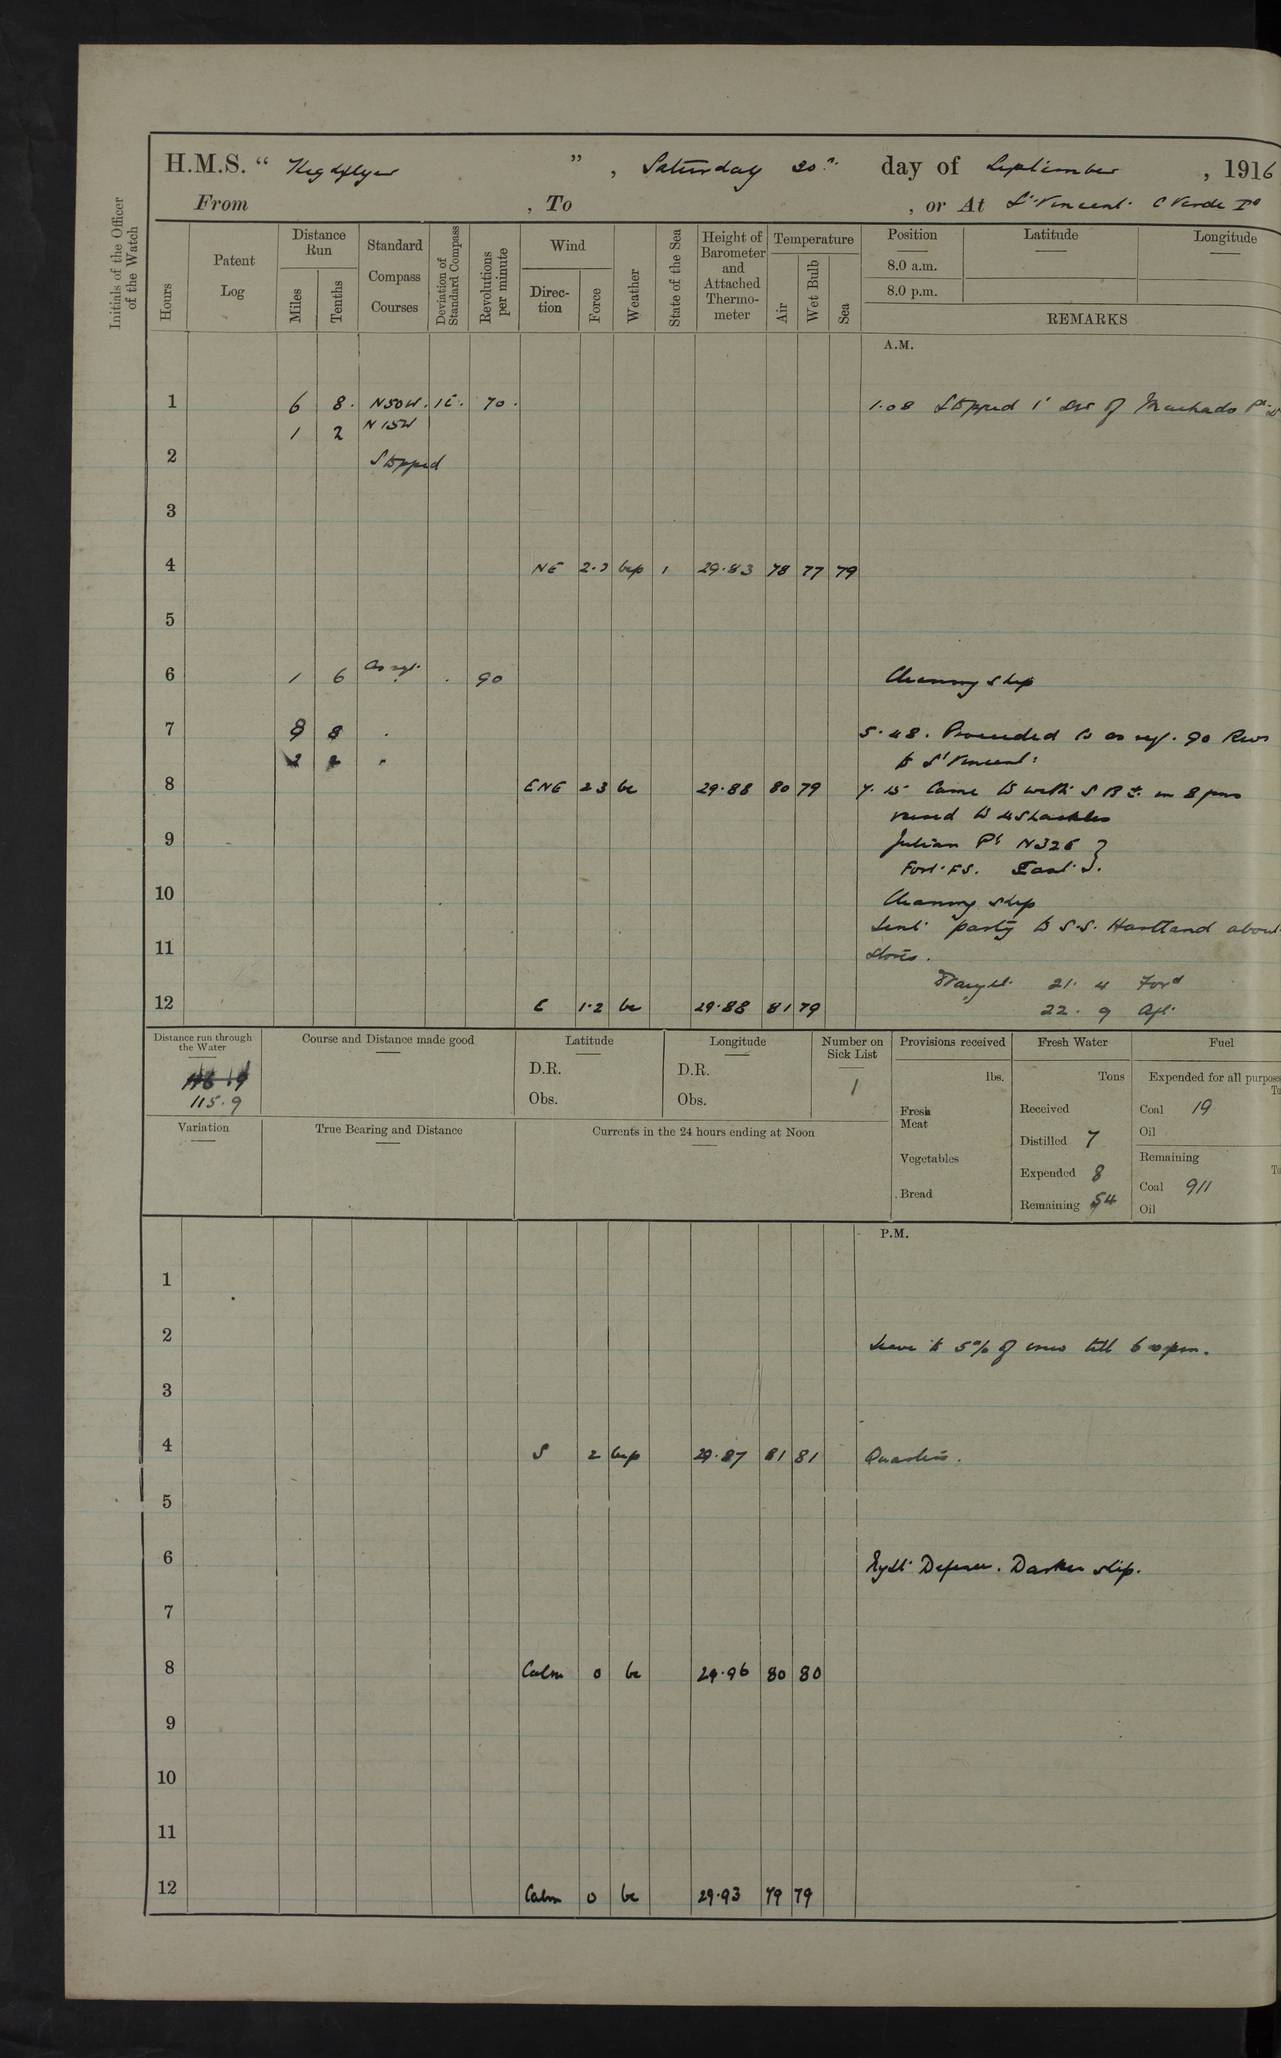 H.M.S. “ Highflyer ”, Saturday 30th day of September, 1916
From , To , or At St Vincent C Verde Ids
Initials of the Officer of the Watch
Hours
Patent Log
Distance Run
Miles
Tenths
Standard Compass Courses
Deviation of Standard Compass
Revolutions per minute
Wind
Direction
Force
Weather
State of the Sea
Height of Barometer and Attached Thermometer
Temperature
Air
Wet Bulb
Sea
Position
Latitude
Longitude
8.0 a.m.
8.0 p.m.
REMARKS
A.M.
1 6 8. N50W. 1E. 70. 1.08 Stopped 1' SW of Machado Pt
1 2 N15W
2 Stopped
3
4 NE 2.3 bcp 1 29.83 78 77 79
5
6 1 6 As req. . 90 Cleaning ship
7 8 8 . 5.48. Proceeded Co as req. 90 Revs
2 2 " to St Vincent.
8 ENE 2 3 bc 29.88 80 79 7.15 Came to with S Br. in 8 fms
veered to 4 Shackles
9 Julian Pt N32E
Fort FS. East.
10 Cleaning ship
Sent party to S.S. Hartland about
11 stores.
Draught 21. 4 Ford
12 E 1.2 bc 29.88 81 79 22. 9 Aft
Distance run through the Water
115.9
Course and Distance made good
Latitude
D.R.
Obs.
Longitude
D.R.
Obs.
Number on Sick List
1
Provisions received
lbs.
Fresh Meat
Vegetables
Bread
Fresh Water
Tons
Received
Distilled 7
Expended 8
Remaining 54
Fuel
Expended for all purpose
Coal 19
Oil
Remaining
Coal 911
Oil
Variation
True Bearing and Distance
Currents in the 24 hours ending at Noon
P.M.
1
2 Leave to 5% of crew till 6.0 pm.
3
4 S 2 bcp 29.87 81 81 Quarters.
5
6 Night Defence. Darken ship.
7
8 Calm 0 bc 29.96 80 80
9
10
11
12 Calm 0 bc 29.93 79 79